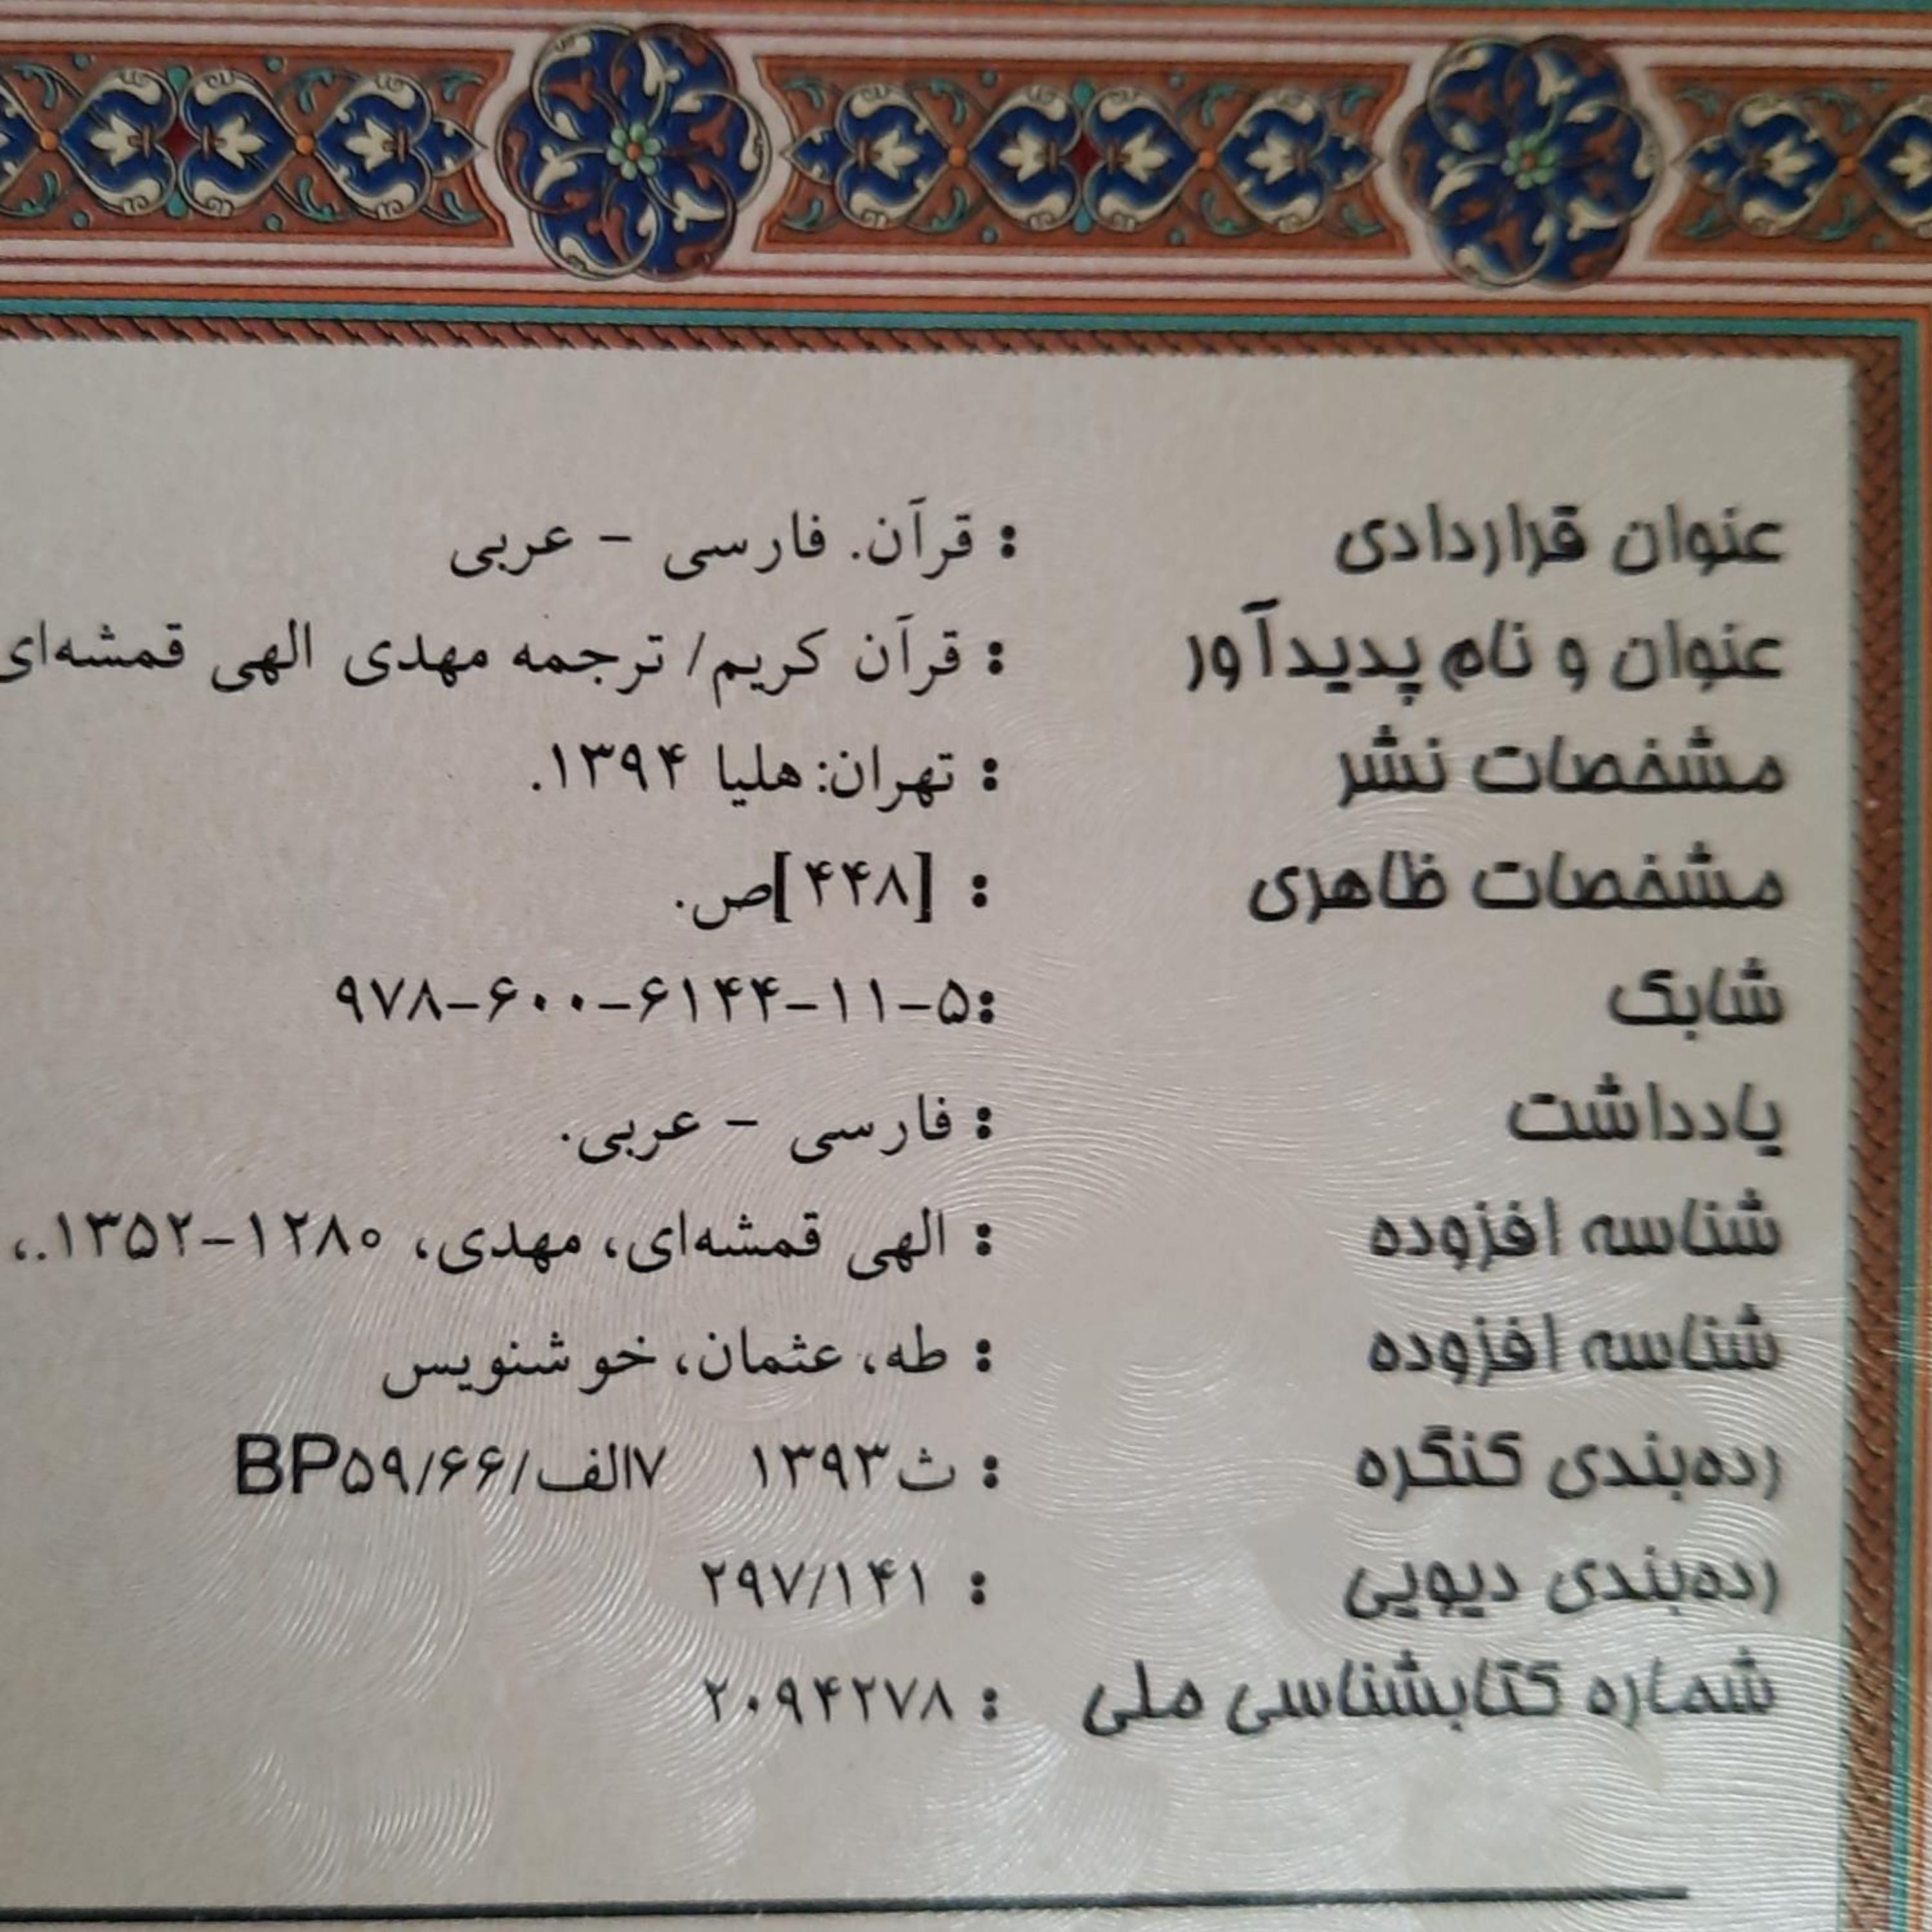 عنوان قراردادی : قرآن. فارسی - عربی
عنوان و نام پدیدآور : قرآن کریم/ ترجمه مهدی الهی قمشه‌ای
مشخصات نشر : تهران: هلیا ۱۳۹۴.
مشخصات ظاهری : [۴۴۸]ص.
شابک :۹۷۸-۶۰۰-۶۱۴۴-۱۱-۵
یادداشت : فارسی - عربی.
شناسه افزوده : الهی قمشه‌ای، مهدی، ۱۲۸۰-۱۳۵۲..،
شناسه افزوده : طه، عثمان، خوشنویس
رده‌بندی کنگره : ث۱۳۹۳ ۷الف/BP۵۹/۶۶
رده‌بندی دیویی : ۲۹۷/۱۴۱
شماره کتابشناسی ملی : ۲۰۹۴۲۷۸